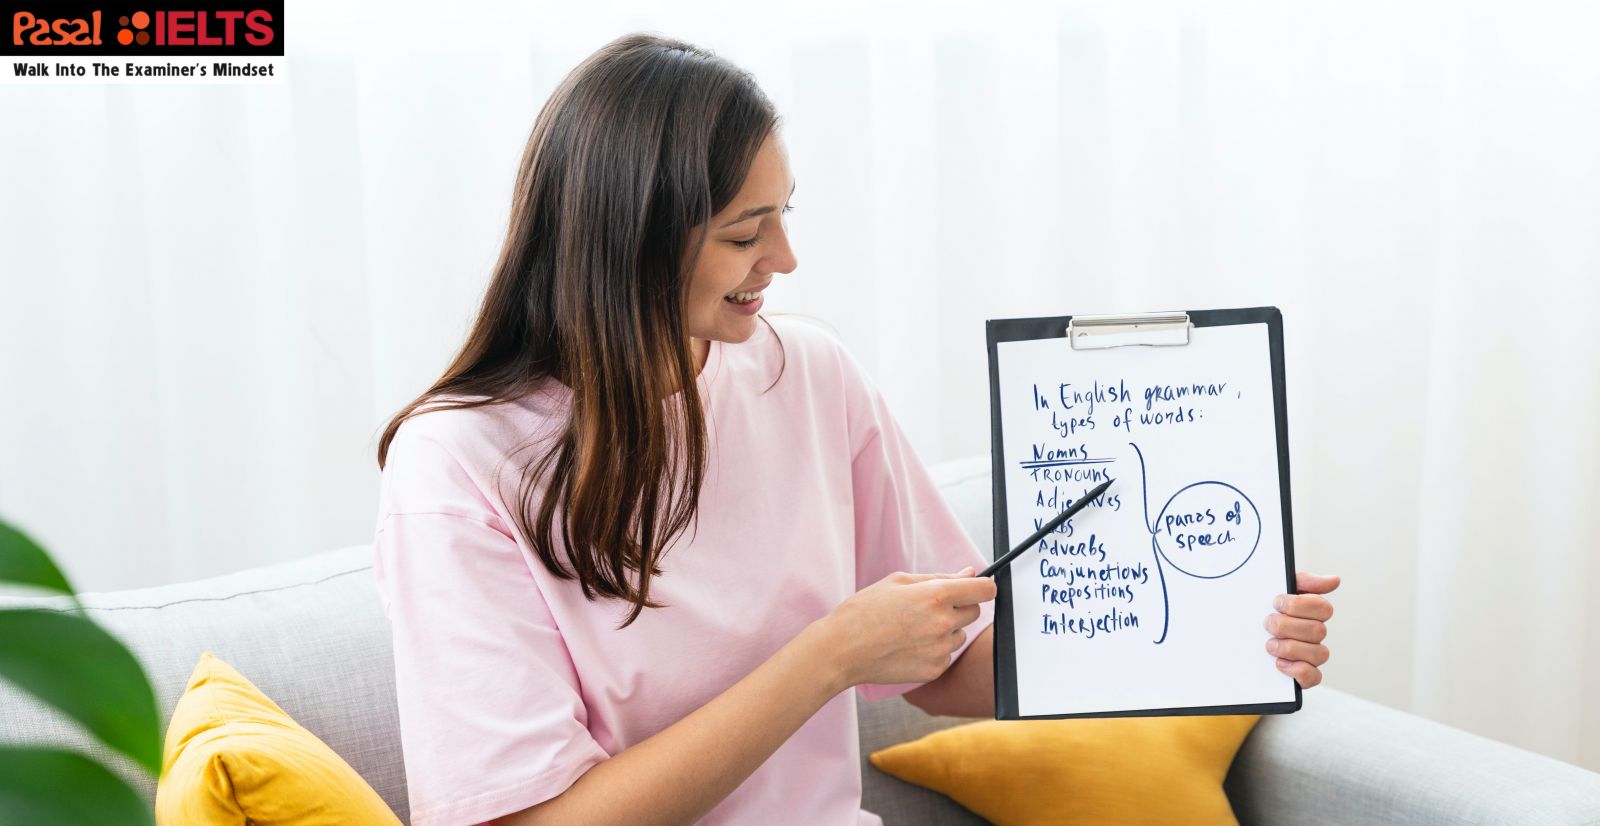 Pasal IELTS
Walk Into The Examiner's Mindset
In English grammar,
types of words:
Nomns
PRONOUNS
Adjectives
Verbs
Adverbs
Conjunctions
Prepositions
Interjection
parts of
speech